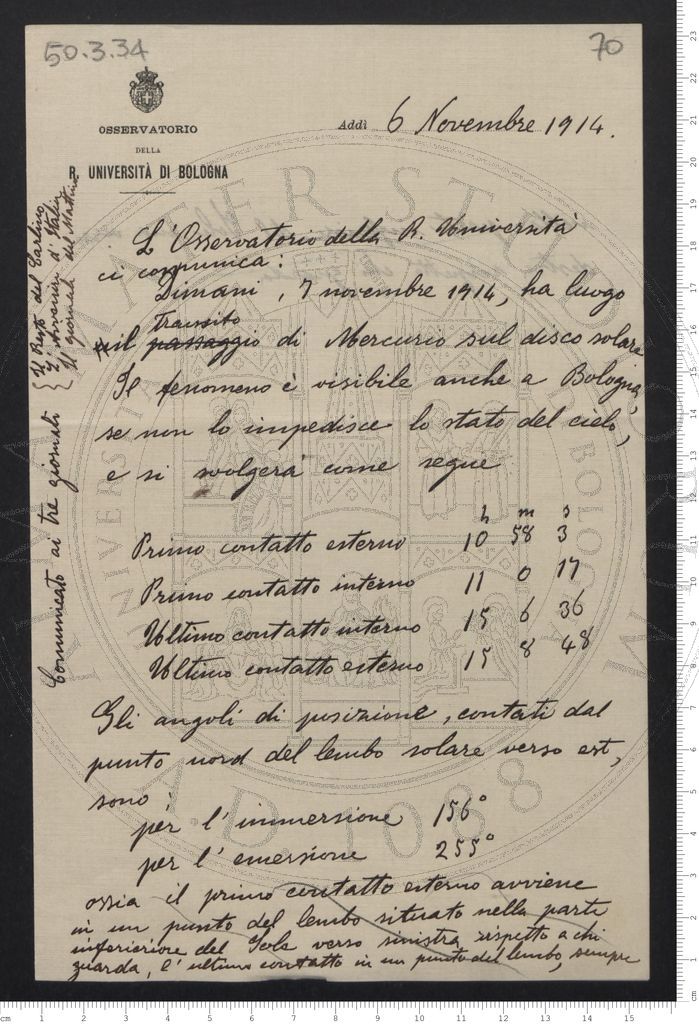 50.3.34
70
OSSERVATORIO
DELLA
R. UNIVERSITÀ DI BOLOGNA
Addì 6 Novembre 1914.
L'Osservatorio della R. Università
ci comunica:
Dimani, 7 novembre 1914, ha luogo
transito
il passaggio di Mercurio sul disco solare
Il fenomeno è visibile anche a Bologna,
se non lo impedisce lo stato del cielo,
e si svolgerà come segue
h m s
Primo contatto esterno 10 58 3
Primo contatto interno 11 0 17
Ultimo contatto interno 15 6 36
Ultimo contatto esterno 15 8 48
Gli angoli di posizione, contati dal
punto nord del lembo solare verso est,
sono
per l'immersione 156°
per l'emersione 255°
ossia il primo contatto esterno avviene
in un punto del lembo situato nella parte
inferiore del Sole verso sinistra rispetto a chi
guarda, l'ultimo contatto in un punto del lembo, sempre
Comunicato ai tre giornali
Il Resto del Carlino
L'avvenire d'Italia
Il giornale del Mattino
ALMA MATER STUDIORUM
UNIVERSITÀ DI BOLOGNA
A.D. 1088